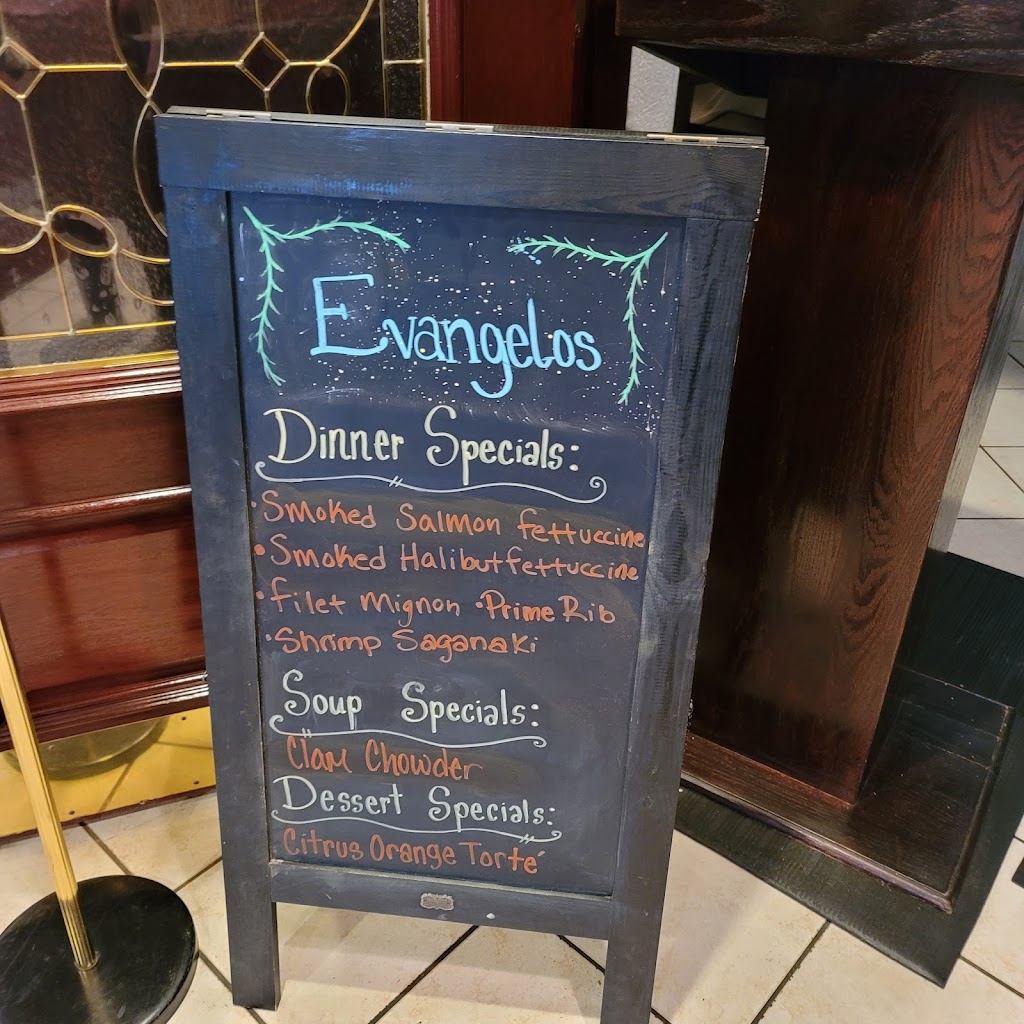 Evangelos
Dinner Specials:
• Smoked Salmon fettuccine
• Smoked Halibut fettuccine
• filet Mignon • Prime Rib
• Shrimp Saganaki
Soup Specials:
Clam Chowder
Dessert Specials:
Citrus Orange Torté